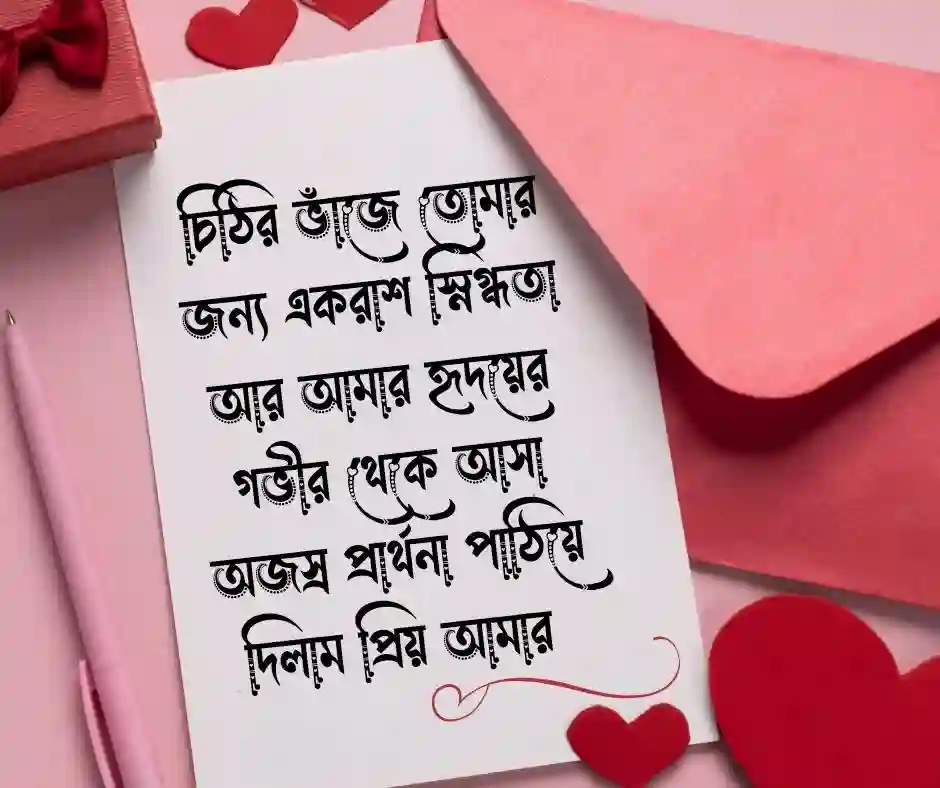 চিঠির ভাঁজে তোমার
জন্য একরাশ স্নিগ্ধতা
আর আমার হৃদয়ের
গভীর থেকে আসা
অজস্র প্রার্থনা পাঠিয়ে
দিলাম প্রিয় আমার